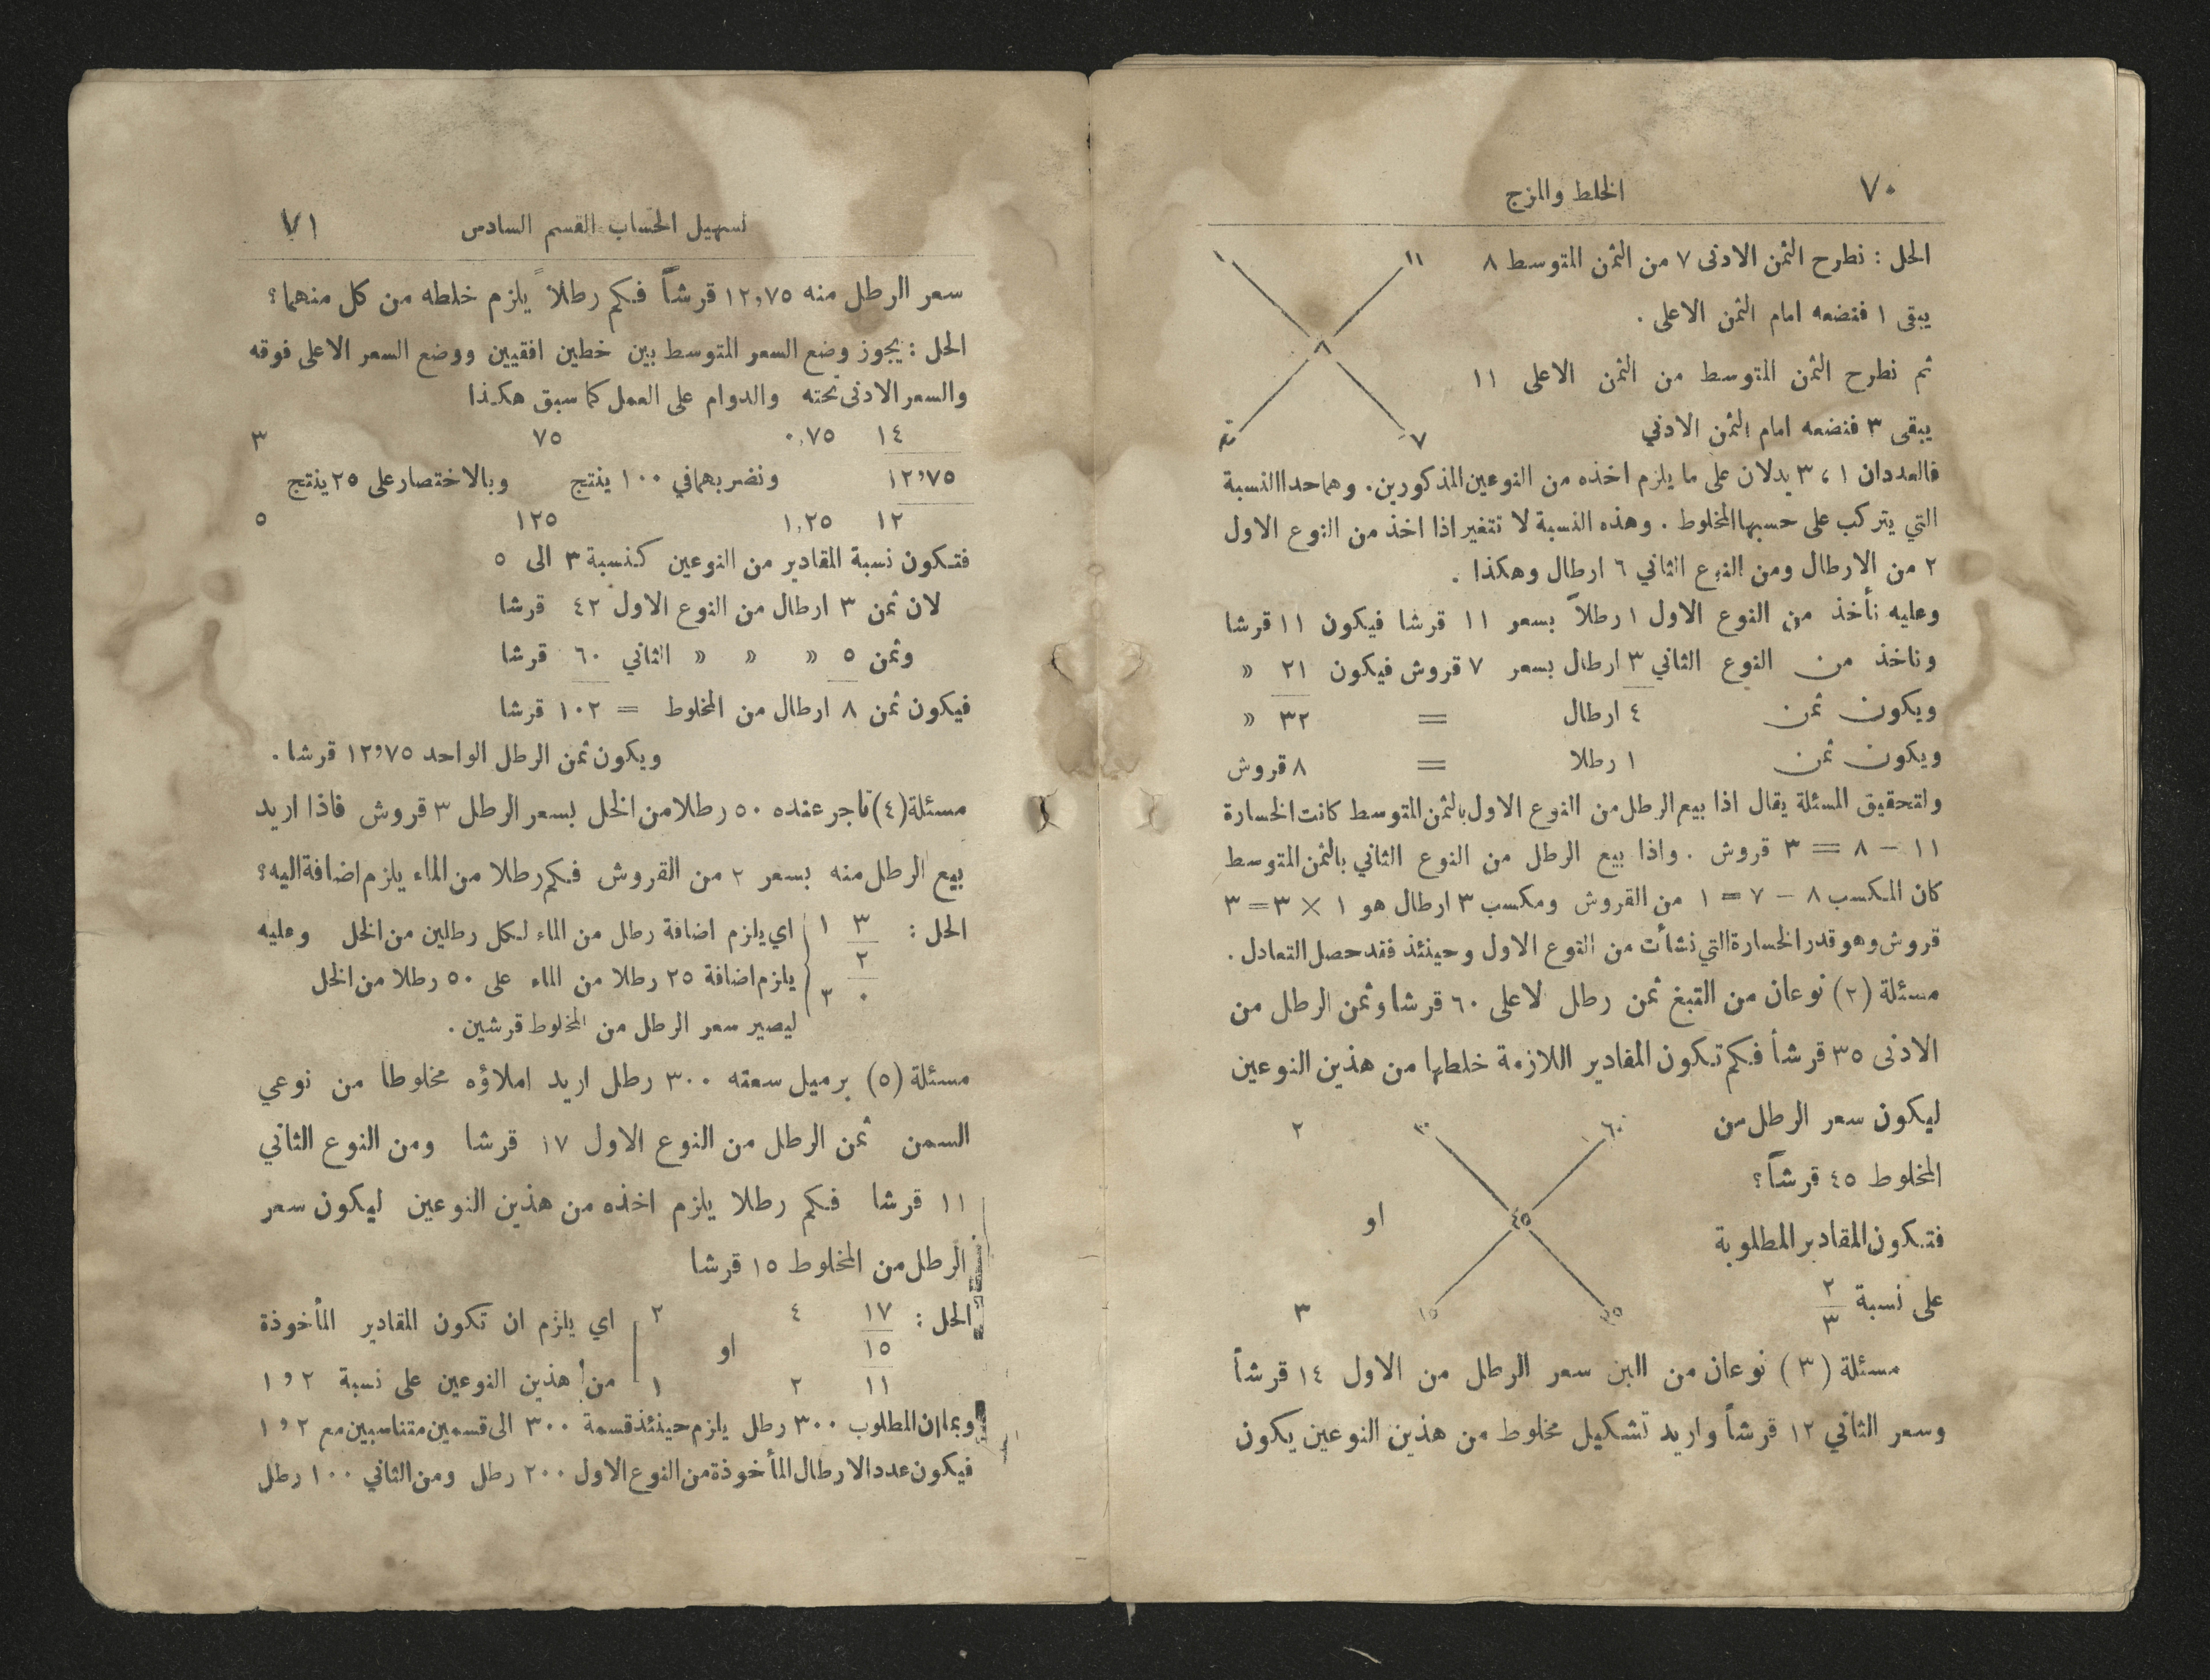 ٧٠
الخلط والمزج
الحل : نطرح الثمن الادنى ٧ من الثمن المتوسط ٨
يبقى ١ فنضعه امام الثمن الاعلى .
ثم نطرح الثمن المتوسط من الثمن الاعلى ١١
يبقى ٣ فنضعه امام الثمن الادنى
١١ ١
٨
٧ ٣
فالعددان ١ ، ٣ يدلان على ما يلزم اخذه من النوعين المذكورين . وهما حدا النسبة
التي يتركب على حسبها المخلوط . وهذه النسبة لا تتغير اذا اخذ من النوع الاول
٢ من الارطال ومن النوع الثاني ٦ ارطال وهكذا .
وعليه نأخذ من النوع الاول ١ رطلاً بسعر ١١ قرشا فيكون ١١ قرشا
وناخذ من النوع الثاني ٣ ارطال بسعر ٧ قروش فيكون ٢١ »
ويكون ثمن ٤ ارطال = ٣٢ »
ويكون ثمن ١ رطلا = ٨ قروش
ولتحقيق المسئلة يقال اذا بيع الرطل من النوع الاول بالثمن المتوسط كانت الخسارة
١١ – ٨ = ٣ قروش . واذا بيع الرطل من النوع الثاني بالثمن المتوسط
كان المكسب ٨ – ٧ = ١ من القروش ومكسب ٣ ارطال هو ١ × ٣ = ٣
قروش وهو قدر الخسارة التي نشأت من النوع الاول وحينئذ فقد حصل التعادل .
مسئلة (٢) نوعان من التبغ ثمن رطل لاعلى ٦٠ قرشا وثمن الرطل من
الادنى ٣٥ قرشاً فكم تكون المقادير اللازمة خلطها من هذين النوعين
ليكون سعر الرطل من
المخلوط ٤٥ قرشاً؟
فتكون المقادير المطلوبة
على نسبة ٢
٣
٦٠ ١٠ ٢
٤٥ او
٣٥ ١٥ ٣
مسئلة (٣) نوعان من البن سعر الرطل من الاول ١٤ قرشاً
وسعر الثاني ١٢ قرشاً واريد تشكيل مخلوط من هذين النوعين يكون
تسهيل الحساب القسم السادس
٧١
سعر الرطل منه ١٢,٧٥ قرشاً فكم رطلاً يلزم خلطه من كل منهما؟
الحل : يجوز وضع السعر المتوسط بين خطين افقيين ووضع السعر الاعلى فوقه
والسعر الادنى تحته والدوام على العمل كما سبق هكذا
١٤ ٠,٧٥ ٧٥ ٣
١٢,٧٥ ونضربهما في ١٠٠ ينتج وبالاختصار على ٢٥ ينتج
١٢ ١,٢٥ ١٢٥ ٥
فتكون نسبة المقادير من النوعين كنسبة ٣ الى ٥
لان ثمن ٣ ارطال من النوع الاول ٤٢ قرشا
وثمن ٥ » » » الثاني ٦٠ قرشا
فيكون ثمن ٨ ارطال من المخلوط = ١٠٢ قرشا
ويكون ثمن الرطل الواحد ١٢,٧٥ قرشا .
مسئلة (٤) تاجر عنده ٥٠ رطلا من الخل بسعر الرطل ٣ قروش فاذا اريد
بيع الرطل منه بسعر ٢ من القروش فكم رطلا من الماء يلزم اضافة اليه؟
الحل : ٣ ١ اي يلزم اضافة رطل من الماء لكل رطلين من الخل وعليه
٢
٠ ٣ يلزم اضافة ٢٥ رطلا من الماء على ٥٠ رطلا من الخل
ليصير سعر الرطل من المخلوط قرشين .
مسئلة (٥) برميل سعته ٣٠٠ رطل اريد املاؤه مخلوطا من نوعي
السمن ثمن الرطل من النوع الاول ١٧ قرشا ومن النوع الثاني
١١ قرشا فكم رطلا يلزم اخذه من هذين النوعين ليكون سعر
الرطل من المخلوط ١٥ قرشا
الحل : ١٧ ٤ ٢ اي يلزم ان تكون المقادير المأخوذة
١٥ او
١١ ٢ ١ من هذين النوعين على نسبة ٢ و ١
وبما ان المطلوب ٣٠٠ رطل يلزم حينئذ قسمة ٣٠٠ الى قسمين متناسبين مع ٢ و ١
فيكون عدد الارطال المأخوذة من النوع الاول ٢٠٠ رطل ومن الثاني ١٠٠ رطل